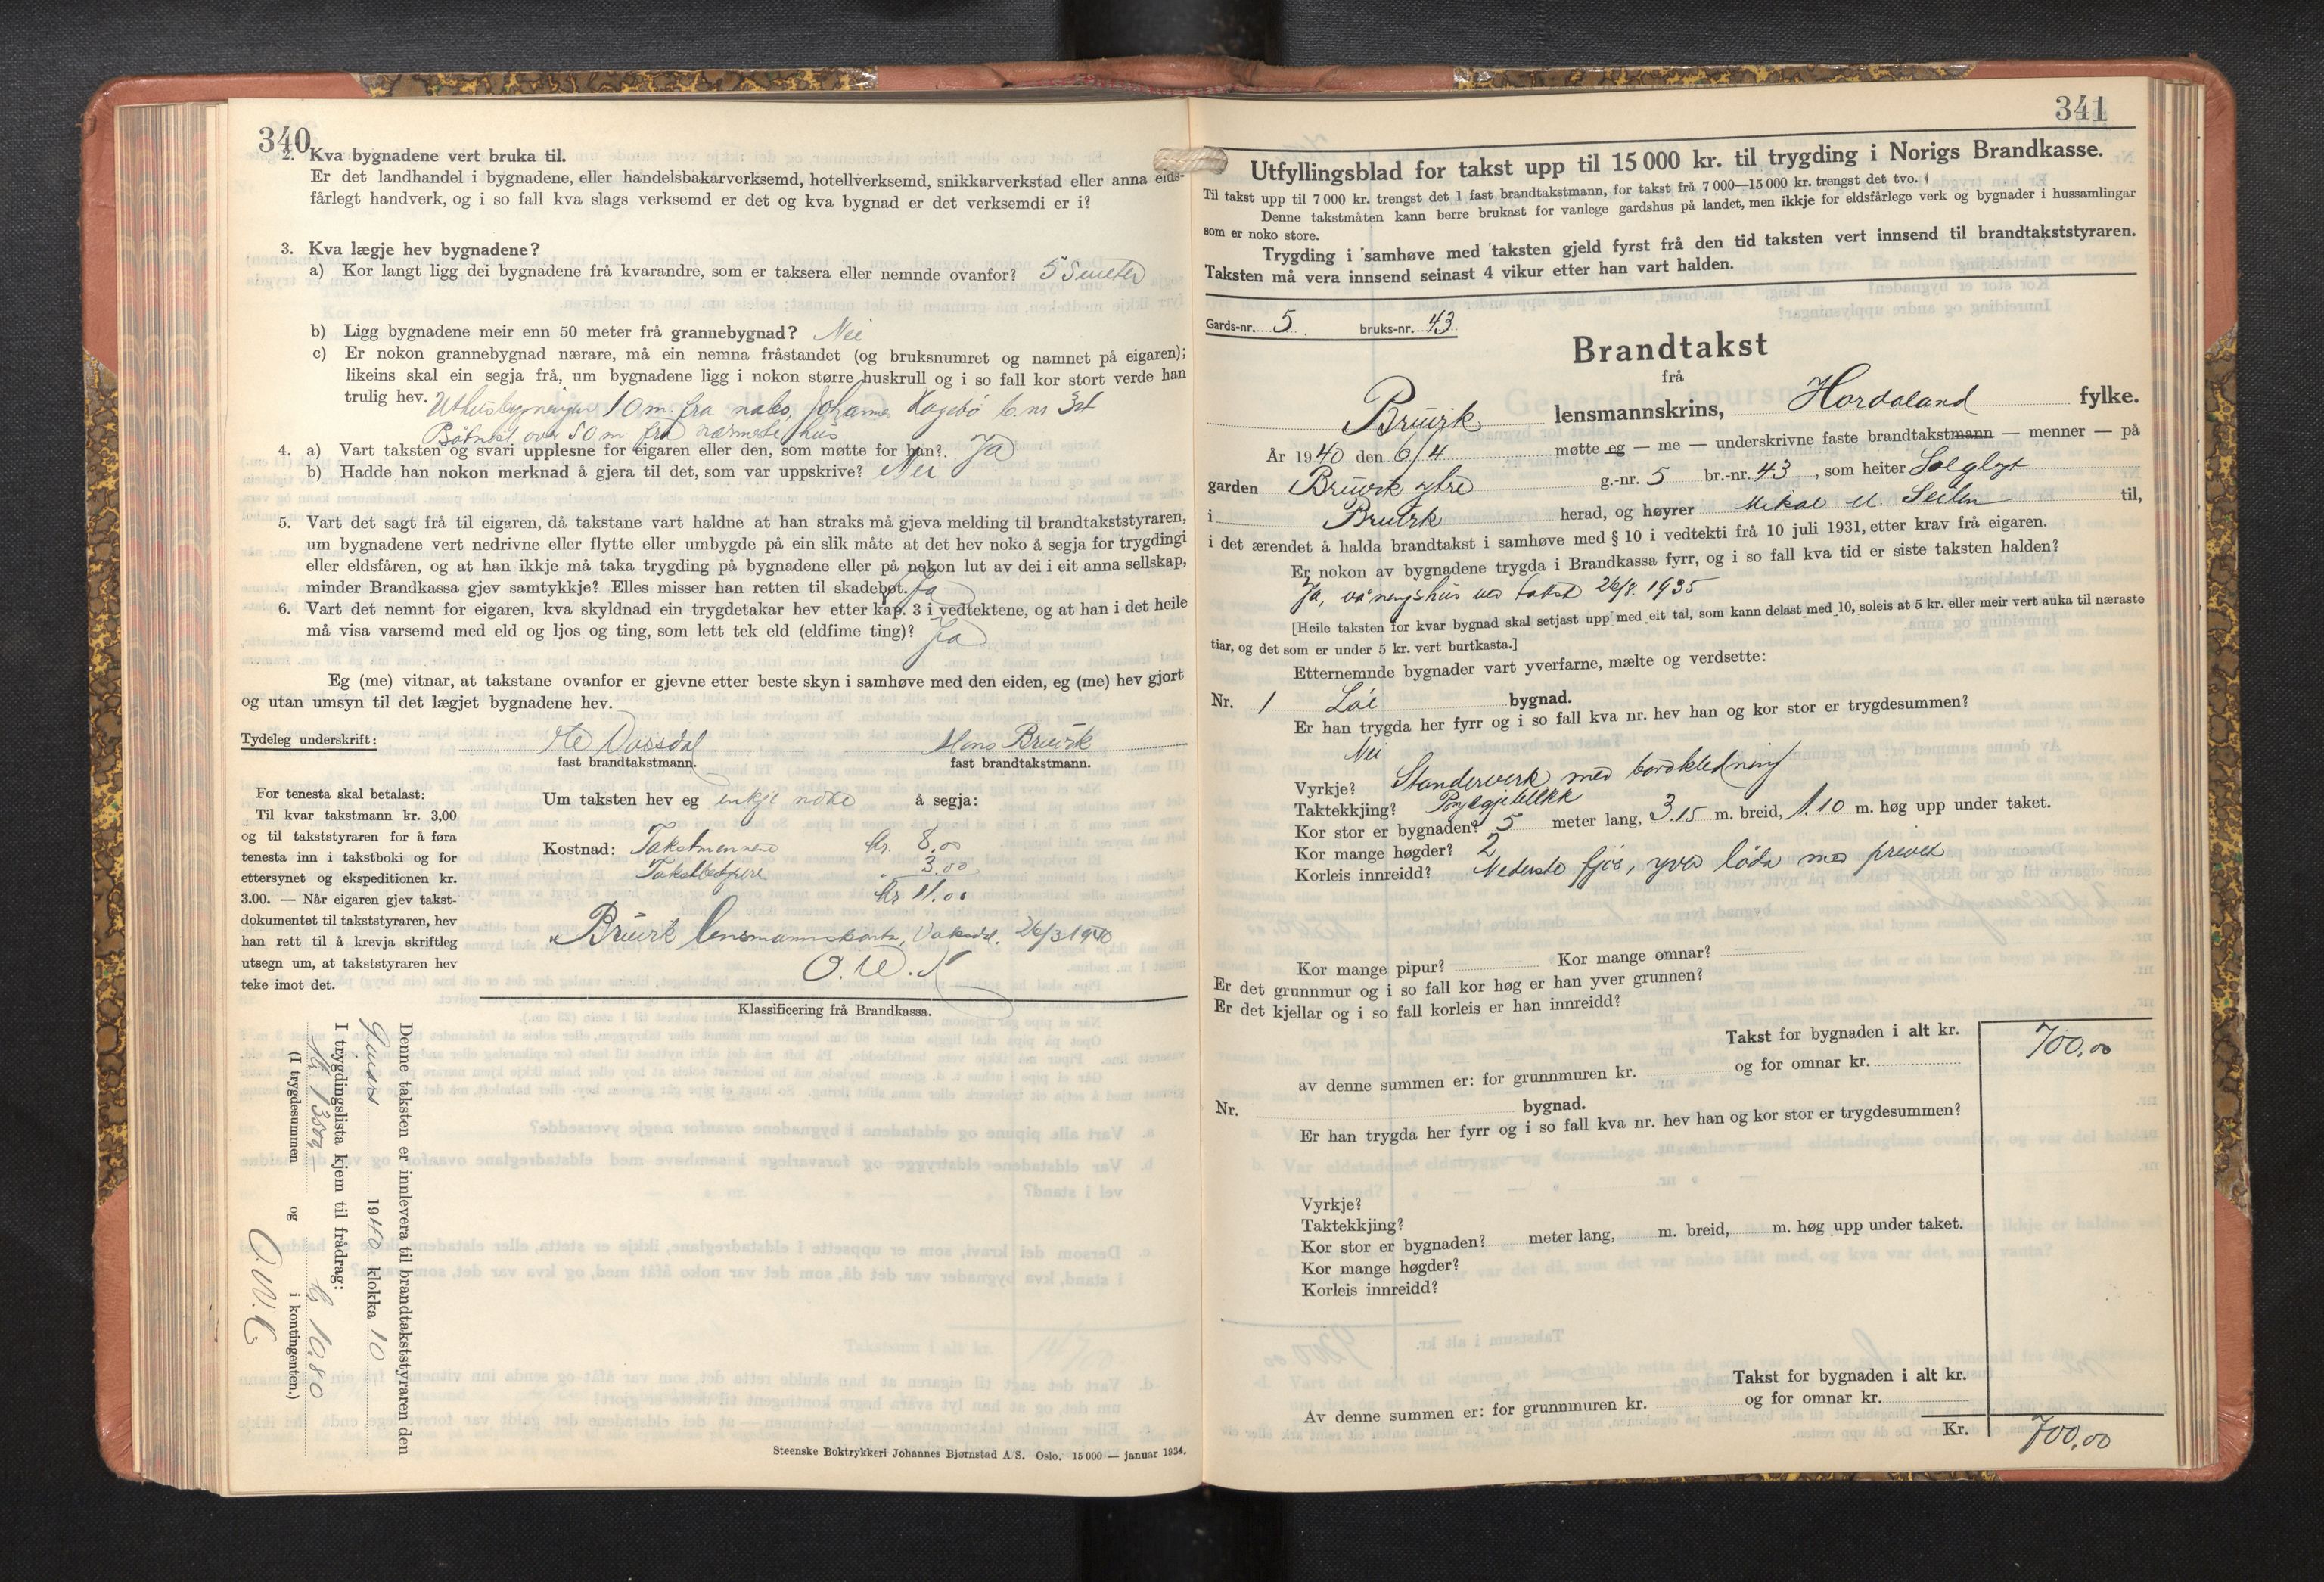 340
2. Kva bygnadene vert bruka til.
Er det landhandel i bygnadene, eller handelsbakarverksemd, hotellverksemd, snikkarverkstad eller anna elds-
fårlegt handverk, og i so fall kva slags verksemd er det og kva bygnad er det verksemdi er i?
3. Kva lægje hev bygnadene?
a) Kor langt ligg dei bygnadene frå kvarandre, som er taksera eller nemnde ovanfor? 5 5 meter
b) Ligg bygnadene meir enn 50 meter frå grannebygnad? Nei
c) Er nokon grannebygnad nærare, må ein nemna fråstandet (og bruksnumret og namnet på eigaren);
likeins skal ein segja frå, um bygnadene ligg i nokon større huskrull og i so fall kor stort verde han
trulig hev. Uthusbygningen 10 m. fra nabo, Johannes b. nr
over 50 m fra nærmeste hus
4. a) Vart taksten og svari upplesne for eigaren eller den, som møtte for han? Ja
b) Hadde han nokon merknad å gjera til det, som var uppskrive? Nei
5. Vart det sagt frå til eigaren, då takstane vart haldne at han straks må gjeva melding til brandtakststyraren,
um bygnadene vert nedrivne eller flytte eller umbygde på ein slik måte at det hev noko å segja for trygdingi
eller eldsfåren, og at han ikkje må taka trygding på bygnadene eller på nokon lut av dei i eit anna sellskap,
minder Brandkassa gjev samtykkje? Elles misser han retten til skadebøt. Ja
6. Vart det nemnt for eigaren, kva skyldnad ein trygdetakar hev etter kap. 3 i vedtektene, og at han i det heile
må visa varsemd med eld og ljos og ting, som lett tek eld (eldfime ting)? Ja
Eg (me) vitnar, at takstane ovanfor er gjevne etter beste skyn i samhøve med den eiden, eg (me) hev gjort
og utan umsyn til det lægjet bygnadene hev.
Tydeleg underskrift: Vassdal Mons Bruvik
fast brandtakstmann. fast brandtakstmann.
For tenesta skal betalast:
Til kvar takstmann kr. 3,00
og til takststyraren for å føra
tenesta inn i takstboki og for
ettersynet og ekspeditionen kr.
3.00. — Når eigaren gjev takst-
dokumentet til takststyraren, hev
han rett til å krevja skriftleg
utsegn um, at takststyraren hev
teke imot det.
Um taksten hev eg inkje noko å segja:
Kostnad: Takstmennene kr. 8,00
Takstbestyrer " 3.00
kr 11.00
Bruvik lensmannskontor, Vaksdal, 26/3 1940
Klassificering frå Brandkassa.
Denne taksten er innlevera til brandtakststyraren den
1940 klokka 10
I trygdingslista kjem til frådrag:
kr 10.80
(I trygdesummen og i kontingenten.)
Steenske Boktrykkeri Johannes Bjørnstad A/S. Oslo. 15 000 — januar 1934.
341
Utfyllingsblad for takst upp til 15 000 kr. til trygding i Norigs Brandkasse.
Til takst upp til 7 000 kr. trengst det 1 fast brandtakstmann, for takst frå 7 000—15 000 kr. trengst det tvo.
Denne takstmåten kann berre brukast for vanlege gardshus på landet, men ikkje for eldsfårlege verk og bygnader i hussamlingar
som er noko store.
Trygding i samhøve med taksten gjeld fyrst frå den tid taksten vert innsend til brandtakststyraren.
Taksten må vera innsend seinast 4 vikur etter han vart halden.
Gards-nr. 5 bruks-nr. 43
Brandtakst
frå
Bruvik lensmannskrins, Hordaland fylke.
År 1940 den 6/4 møtte eg — me — underskrivne faste brandtakstmann — menner — på
garden Bruvik ytre g.-nr. 5 br.-nr. 43, som heiter Solgløyt
i Bruvik herad, og høyrer Mikal M. Seilen til,
i det ærendet å halda brandtakst i samhøve med § 10 i vedtekti frå 10 juli 1931, etter krav frå eigaren.
Er nokon av bygnadene trygda i Brandkassa fyrr, og i so fall kva tid er siste taksten halden?
Ja, våningshus ved takst 26/8. 1935
[Heile taksten for kvar bygnad skal setjast upp med eit tal, som kann delast med 10, soleis at 5 kr. eller meir vert auka til næraste
tiar, og det som er under 5 kr. vert burtkasta.]
Etternemnde bygnader vart yverfarne, mælte og verdsette:
Nr. 1 Löe bygnad.
Er han trygda her fyrr og i so fall kva nr. hev han og kor stor er trygdesummen?
Nei
Vyrkje? Standerverk med bordkledning
Taktekkjing?
Kor stor er bygnaden? 5 meter lang, 3.15 m. breid, 1.10 m. høg upp under taket.
Kor mange høgder? 2
Korleis innreidd? Nederste fjös, yver löda med privet
Kor mange pipur? Kor mange omnar?
Er det grunnmur og i so fall kor høg er han yver grunnen?
Er det kjellar og i so fall korleis er han innreidd?
Takst for bygnaden i alt kr. 700,00
av denne summen er: for grunnmuren kr. og for omnar kr.
Nr. bygnad.
Er han trygda her fyrr og i so fall kva nr. hev han og kor stor er trygdesummen?
Vyrkje?
Taktekkjing?
Kor stor er bygnaden? meter lang, m. breid, m. høg upp under taket.
Kor mange høgder?
Korleis innreidd?
Takst for bygnaden i alt kr.
Av denne summen er: for grunnmuren kr. og for omnar kr.
Kr. 700,00